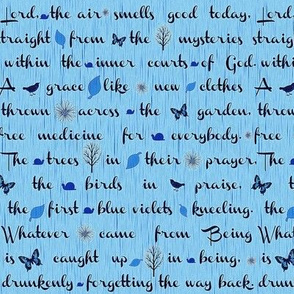 Lord, the air smells good today, Lord,
straight from the mysteries straight
within the inner courts of God. within
A grace like new clothes A
thrown across the garden, thrown
free medicine for everybody. free
The trees in their prayer, The
the birds in praise, the
the first blue violets kneeling. the
Whatever came from Being What
is caught up in being, is
drunkenly forgetting the way back drun